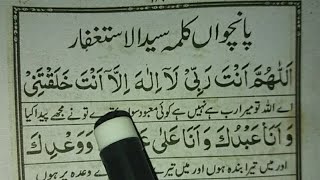 پانچواں کلمہ سید الاستغفار
اَللّٰهُمَّ اَنْتَ رَبِّیْ لَآ اِلٰهَ اِلَّآ اَنْتَ خَلَقْتَنِیْ
اے اللہ تو میرا رب ہے نہیں ہے کوئی معبود سوا تیرے تو نے مجھے پیدا کیا
وَ اَنَا عَبْدُكَ وَ اَنَا عَلٰی وَوَعْدِكَ
اور میں تیرا بندہ ہوں اور میں تیرے وعدہ پر ہوں